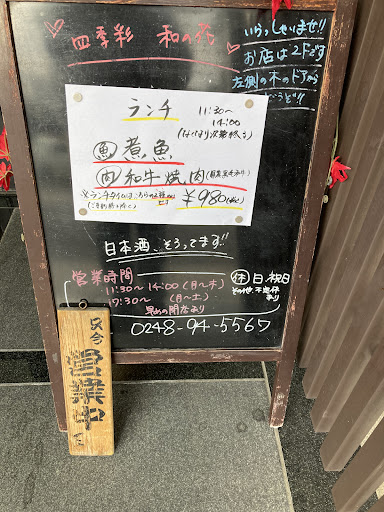 四季彩 和の花
いらっしゃいませ!!
お店は2Fです
左側の木のドアから
どうぞ!!
ランチ 11:30〜
14:00
(なくなり次第終了)
魚 煮魚
肉 和牛焼肉
※ランチタイムはこちらの2種のみです
¥980(税込)
日本酒、そろってます!!
営業時間
11:30〜14:00(月〜土)
17:30〜 (月〜土)
早めの閉店あり
休 日・祝日
その他不定休
あり
0248-94-5567
只今
営業中
です